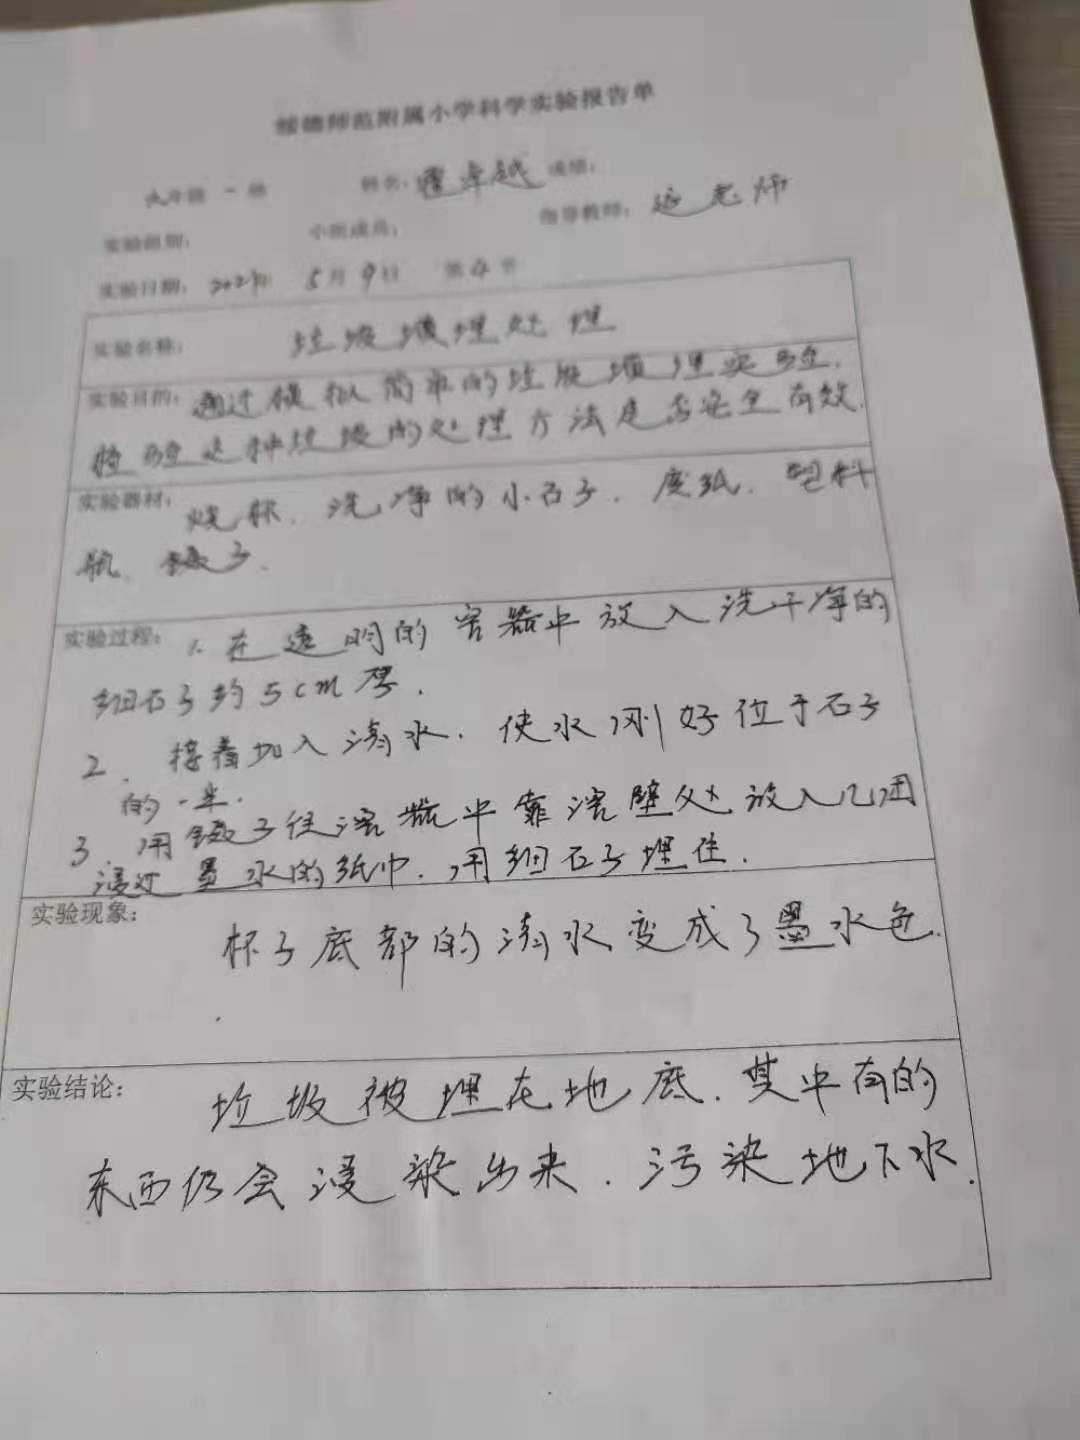 绥德师范附属小学科学实验报告单
六年级 一 班 姓名: 卓越 成绩:
实验组别: 小组成员: 指导教师: 延老师
实验日期: 2021年 5月9日 第4节
实验名称: 垃圾填埋处理
实验目的: 通过模拟简单的垃圾填埋实验.
检验这种垃圾的处理方法是否安全有效.
实验器材: 烧杯. 洗净的小石子. 废纸. 塑料
瓶. 镊子.
实验过程: 1. 在透明的容器中放入洗干净的
细石子约5cm厚.
2. 接着加入清水. 使水刚好位于石子
的一半.
3. 用镊子往容器中靠容壁处放入几团
浸过墨水的纸巾. 用细石子埋住.
实验现象:
杯子底部的清水变成了墨水色.
实验结论: 垃圾被埋在地底. 其中有的
东西仍会浸染出来. 污染地下水.